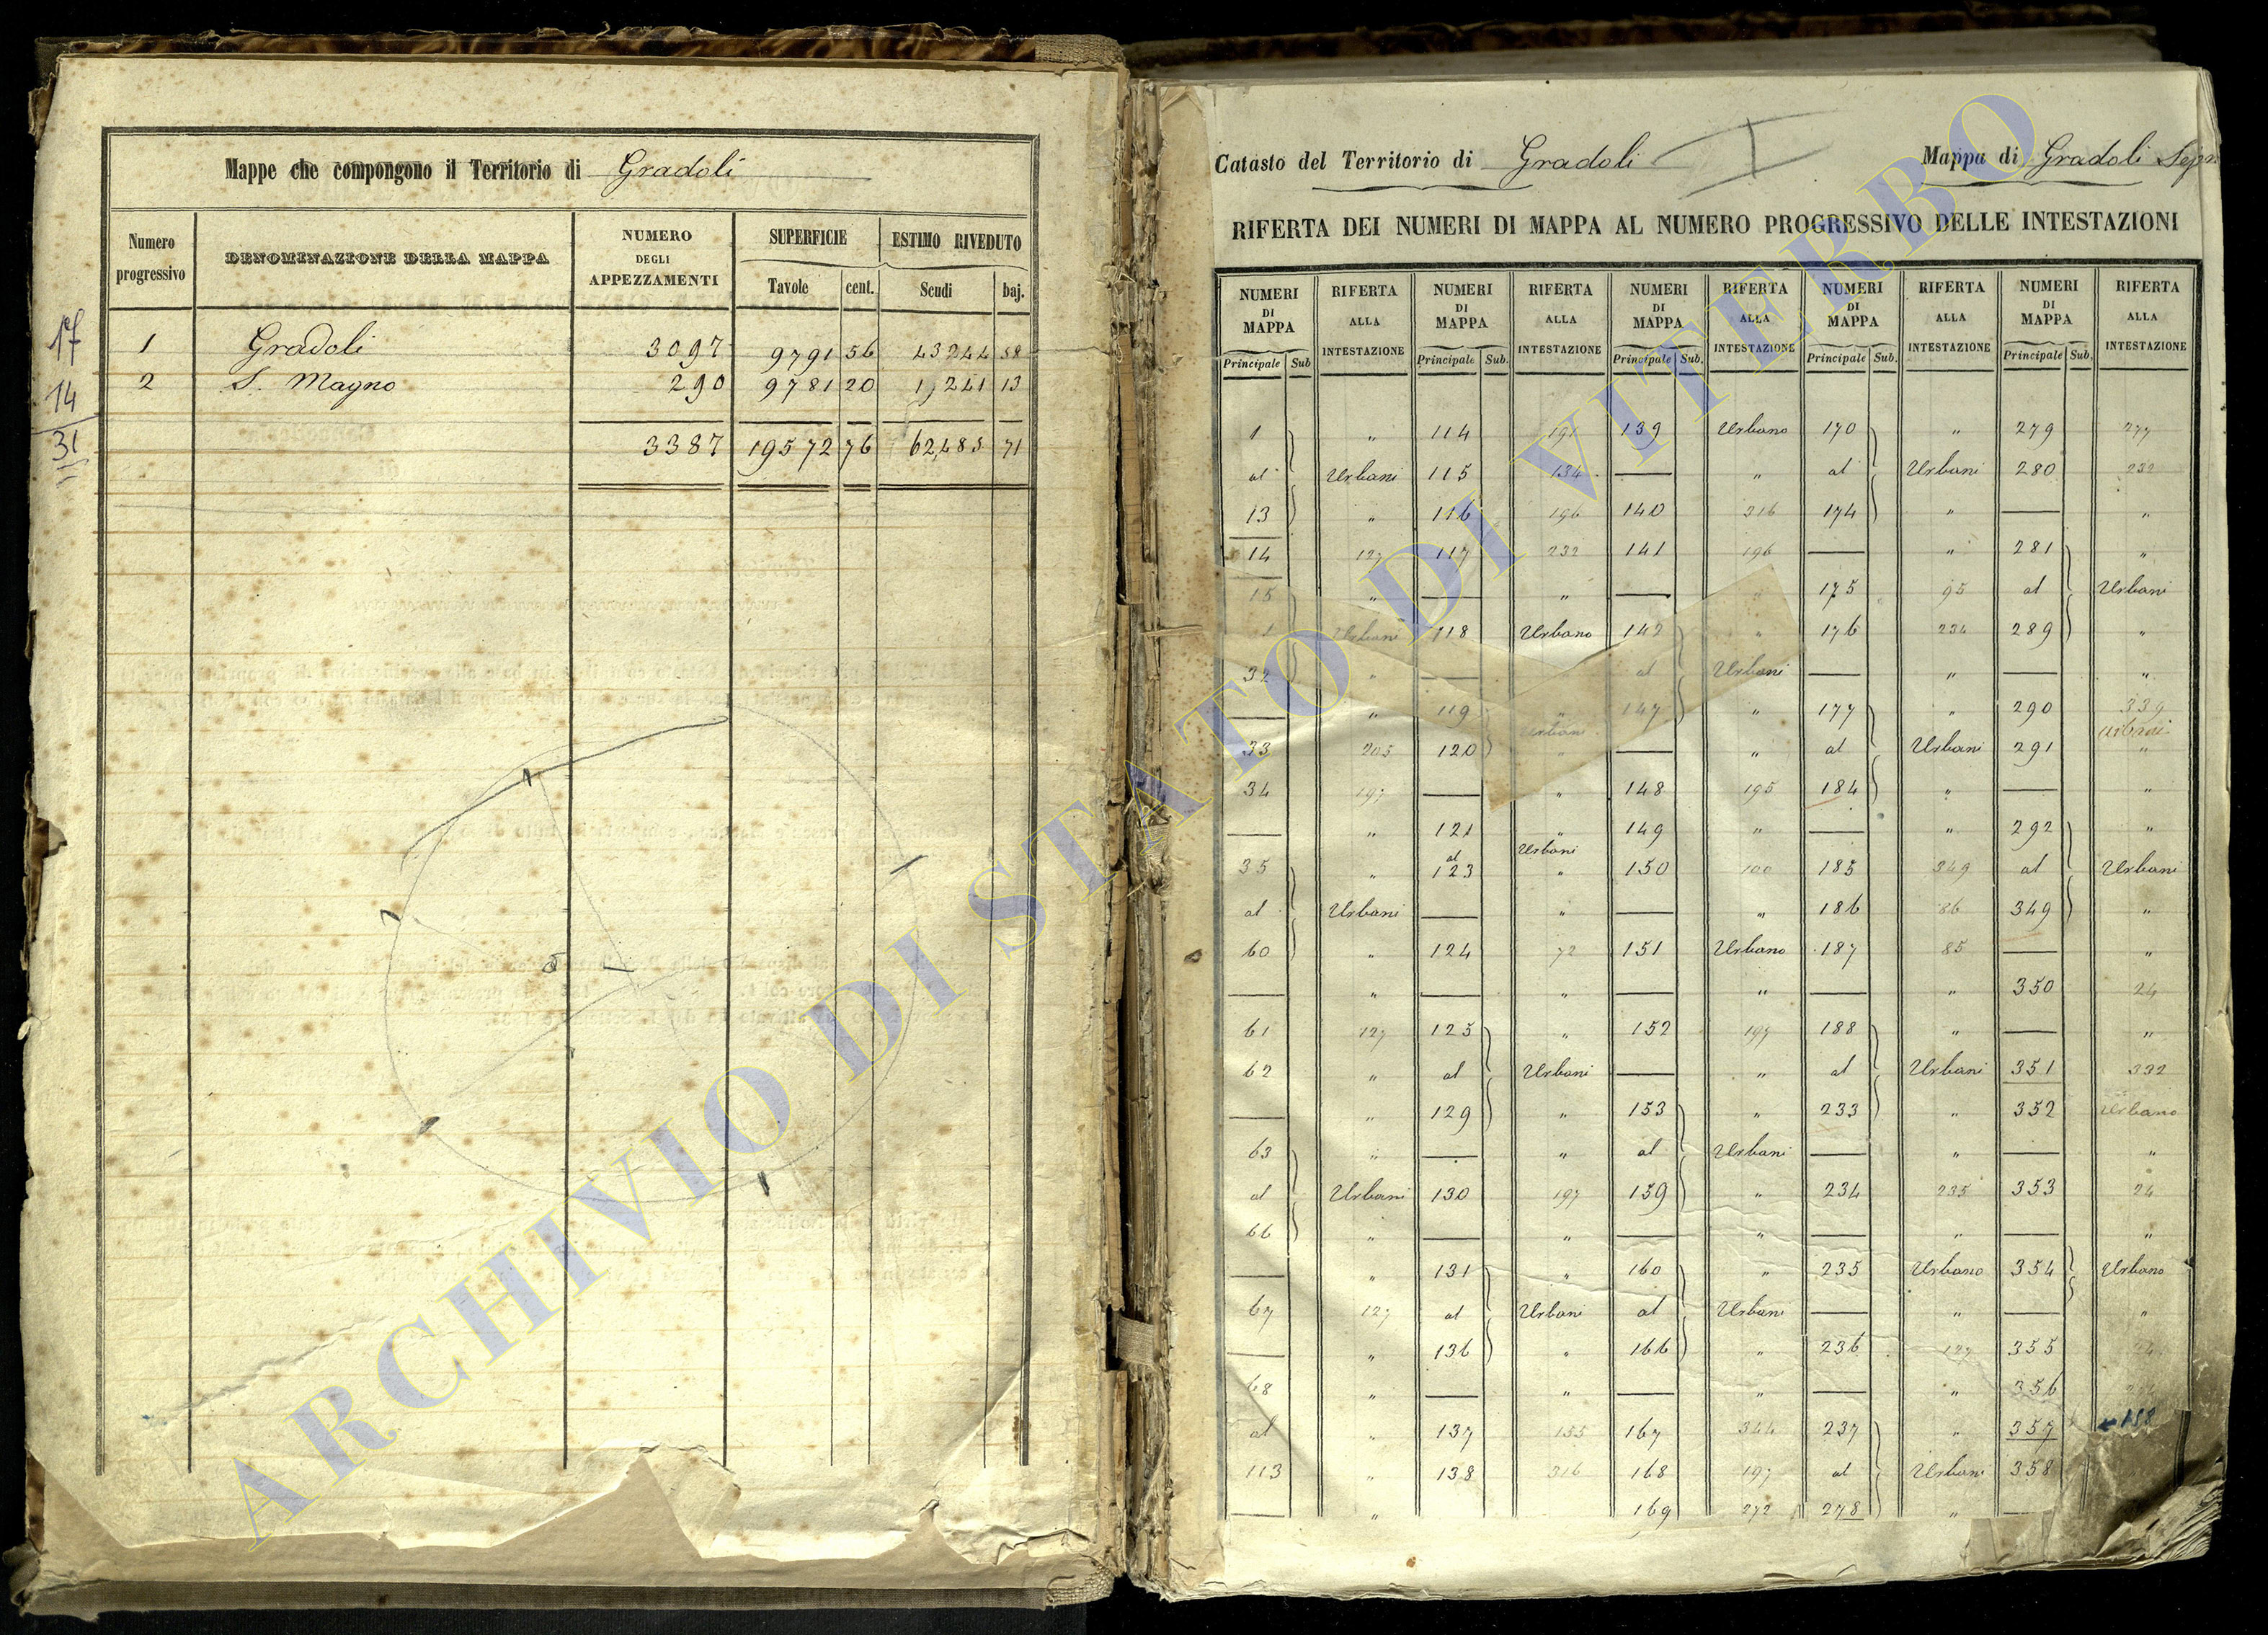 Mappe che compongono il Territorio di Gradoli
Numero progressivo | DENOMINAZIONE DELLA MAPPA | NUMERO DEGLI APPEZZAMENTI | SUPERFICIE | ESTIMO RIVEDUTO
Tavole | cent. | Scudi | baj.
17
1 Gradoli 3097 9791 56 43244 58
14
2 S. Magno 290 9781 20 13
31
3387 19572 76 62,485 71
Catasto del Territorio di Gradoli I Mappa di Gradoli
RIFERTA DEI NUMERI DI MAPPA AL NUMERO PROGRESSIVO DELLE INTESTAZIONI
NUMERI DI MAPPA | RIFERTA ALLA INTESTAZIONE | NUMERI DI MAPPA | RIFERTA ALLA INTESTAZIONE | NUMERI DI MAPPA | RIFERTA ALLA INTESTAZIONE | NUMERI DI MAPPA | RIFERTA ALLA INTESTAZIONE | NUMERI DI MAPPA | RIFERTA ALLA INTESTAZIONE
Principale | Sub | Principale | Sub. | Principale | Sub. | Principale | Sub. | Principale | Sub.
1 " 114 191 139 Urbano 170 " 279 277
al Urbani 115 134 — " al Urbani 280 232
13 " 116 196 140 216 174 " — "
14 127 117 232 141 196 — " 281 "
15 " — " — " 175 95 al Urbani
Urbani 118 Urbano 142 " 176 234 289 "
32 " — al Urbani — " — "
— " 119 " 147 " 177 " 290 339
33 205 120 Urbani — " al Urbani 291 Urbani
34 197 — " 148 195 184 " — "
— " 121 " 149 " — " 292 "
35 " al 123 Urbani 150 100 185 349 al Urbani
al Urbani — " — " 186 86 349 "
60 " 124 72 151 Urbano 187 85 — "
— " — " — " — " 350 24
61 127 125 " 152 197 188 " — "
62 " al Urbani — " al Urbani 351 332
— " 129 " 153 " 233 " 352 Urbano
63 " — " al Urbani — " — "
al Urbani 130 197 159 " 234 235 353 24
66 " — " — " — " — "
— " 131 " 160 " 235 Urbano 354 Urbano
67 127 al Urbani al Urbani — " — "
— " 136 " 166 " 236 127 355
68 " — " — " — " 356
al " 137 155 167 344 237 " 357 158
113 " 138 316 168 197 al Urbani 358
— " 169 272 278 " —
ARCHIVIO DI STATO DI VITERBO